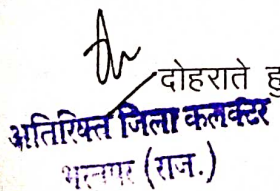 दोहराते हु
अतिरिक्त जिला कलक्टर
भरतपुर (राज.)